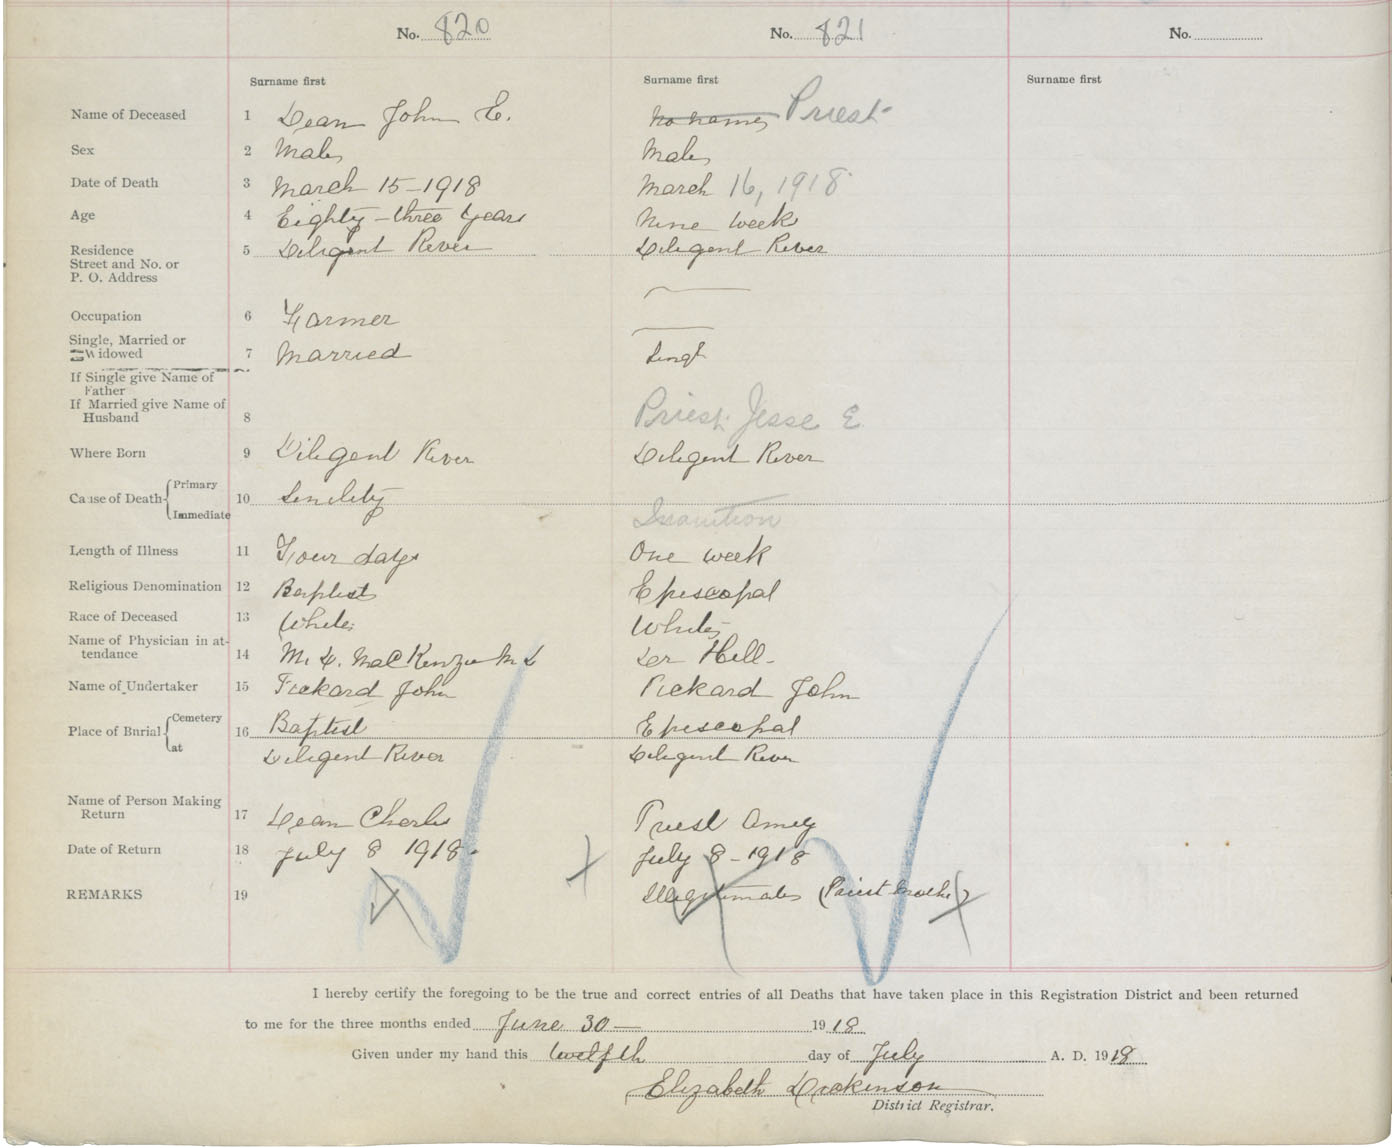 No. 820 No. 821 No.
Surname first Surname first Surname first
Name of Deceased 1 Dean John E. No name Priest
Sex 2 Male Male
Date of Death 3 March 15-1918 March 16, 1918
Age 4 Eighty-three years Nine week
Residence 5 Diligent River Diligent River
Street and No. or
P. O. Address
Occupation 6 Farmer
Single, Married or
Widowed 7 Married Singl
If Single give Name of
Father
If Married give Name of
Husband 8 Priest Jesse E.
Where Born 9 Diligent River Diligent River
Cause of Death Primary 10 Senility
Immediate Inanition
Length of Illness 11 Four days One week
Religious Denomination 12 Baptist Episcopal
Race of Deceased 13 White White
Name of Physician in at-
tendance 14 M. D. MacKenzie M D Hill
Name of Undertaker 15 Pickard John Pickard John
Place of Burial Cemetery 16 Baptist Episcopal
at Diligent River Diligent River
Name of Person Making
Return 17 Dean Charles Priest Amey
Date of Return 18 July 8 1918 July 8-1918
REMARKS 19 Illegitimate (Priest mother)
I hereby certify the foregoing to be the true and correct entries of all Deaths that have taken place in this Registration District and been returned
to me for the three months ended June 30 1918
Given under my hand this twelfth day of July A. D. 1918
Elizabeth Dickinson
District Registrar.